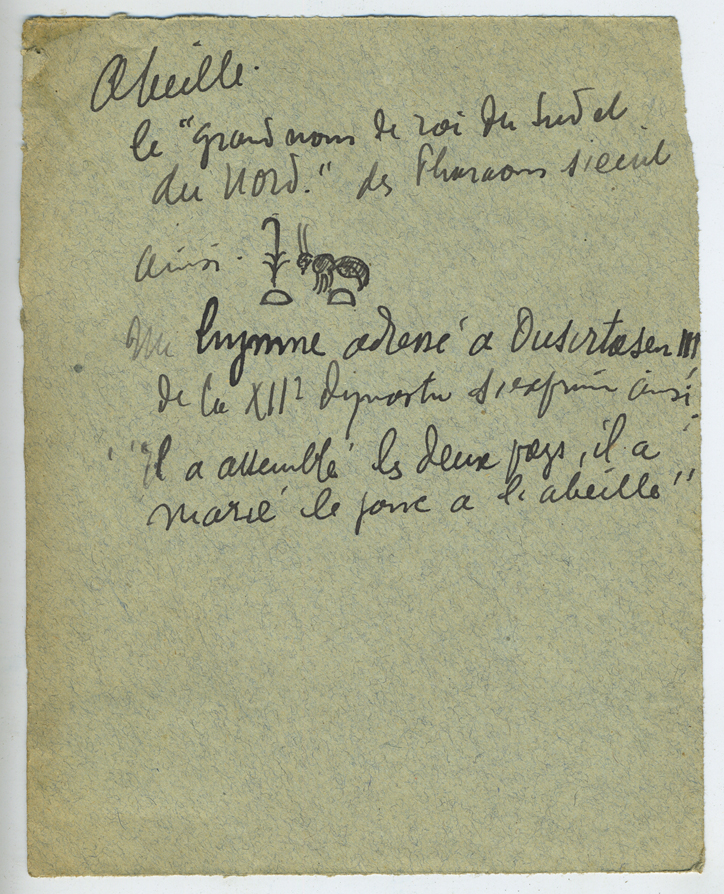 Abeille.
le "grand nom de roi du Sud et
du Nord." des Pharaons s'écrit
ainsi.
Un hymne adressé a Ousirtasen III
de la XIIe dynastie s'exprime ainsi :
"il a assemblé les deux pays, il a
marié le jonc a l'abeille"